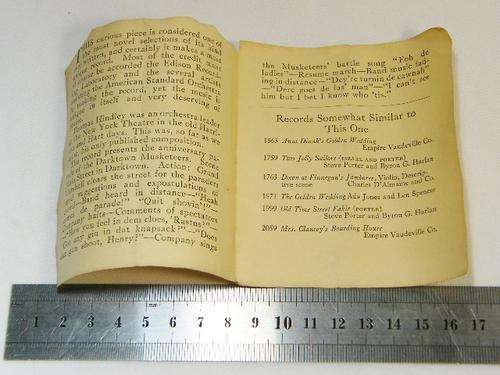 This curious piece is considered one of
the most novel selections of its kind
written, and certainly it makes a most
record. Most of the credit must
be accorded the Edison Recording
Laboratory and the several artists
the American Standard Orchestra
the record, yet the music is
itself and very deserving of
Thomas Hindley was an orchestra leader
New York Theatre in the old
and Hart days. This was, so far as we
his only published composition.
record presents the anniversary
the Darktown Musketeers. Scene
street in Darktown. Action: Grand
clears the street for the paraders
and expostulations of
Band heard in distance—"Heah
de parade!" "Quit shovin'"—
halts—Comments of spectators
you feel in dem cloes, 'Rastus?"
any gin in dat knapsack?"—"Does
gun shoot, Henry?"—Company sings
the Musketeers' battle song "Foh de
ladies"—Resume march—Band music fad-
ing in distance—"Dey're turnin de cawnah"
—"Dere goes de las' man"—"I can't see
him but I bet I know who 'tis."
Records Somewhat Similar to
This One
1863 Aunt Dinah's Golden Wedding
Empire Vaudeville Co.
1759 Two Jolly Sailors
Steve Porter and Byron G. Harlan
1763 Down at Finnegan's Jamboree, Violin, Descrip-
tive scene Charles D'Almaine and Co.
1871 The Golden Wedding Ada Jones and Len Spencer
1999 Old Time Street Fakir
Steve Porter and Byron G. Harlan
2059 Mrs. Clancy's Boarding House
Empire Vaudeville Co.
1 2 3 4 5 6 7 8 9 10 11 12 13 14 15 16 17